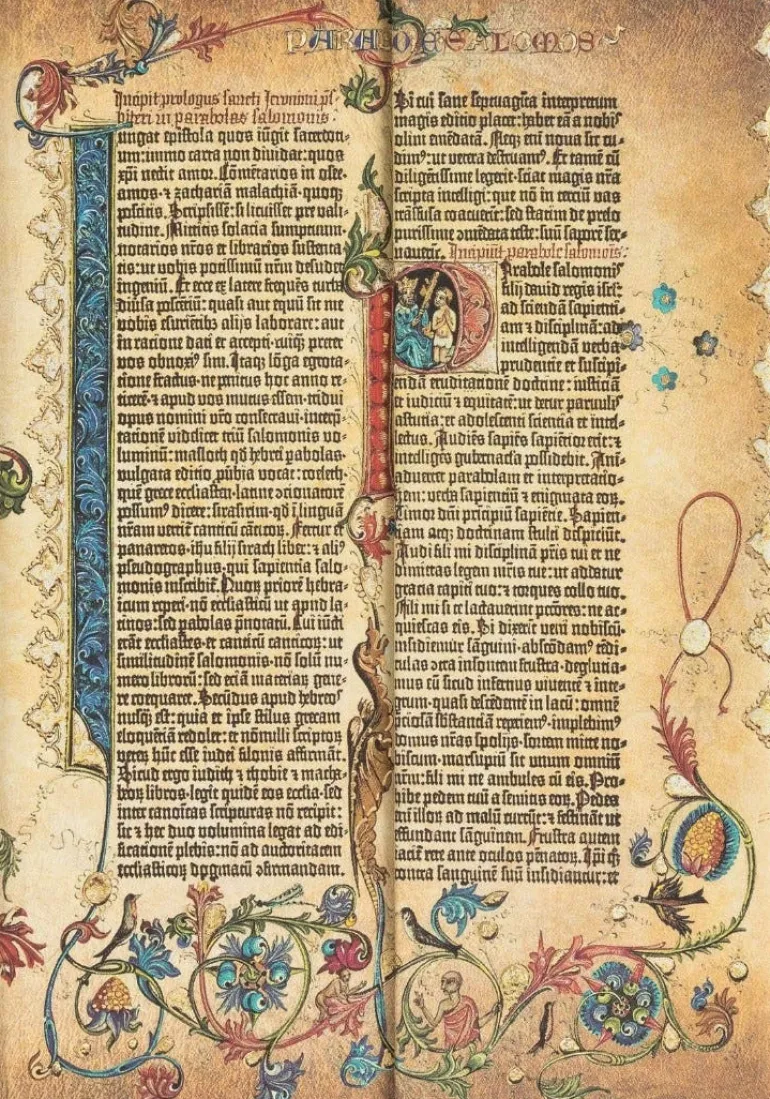 PARABOLE SALOMOIS
Incipit prologus sancti Jeronimi p̄s-
biteri in parabolas salomonis
Iungat epistola quos iūgit sacerdoti-
um: immo carta non diuidat: quos
xp̄i nectit amor. Cōmētarios in osee.
amos. ⁊ zachariā malachiā· quoqȝ
poscitis. Scripsissē: si licuisset pre vali-
tudine. Mittitis solacia sumptuum·
notarios nr̄os et librarios sustenta-
tis: ut vobis potissimū nr̄m desudet
ingeniū. Et ecce ex latere frequēs turba
diūsa poscētiū: quasi aut equū sit me
vobis esurietibȝ alijs laborare: aut
in ratione dati et accepti· cuiqȝ preter
vos obnoxiꝰ sim. Itaqȝ lōga egrota-
tione fractus· ne penitus hoc anno re-
ticerē· ⁊ apud vos mutus essem· tridui
opus nomini vr̄o consecraui· interp̄-
tationē videlicet triū salomonis vo-
luminū: masloth qd̄ hebrei pabolas·
vulgata editio pūbia vocat: coeleth·
quē grece ecclīasten· latine ↄcionatorē
possumꝰ dicere: sirasirim· qd̄ ī linguā
nr̄am vertit̄ canticū cāticoꝝ. Fertur et
panaretos· ih̄u filij sirach liber: ⁊ aliꝰ
pseudographus· qui sapientia salo-
monis inscribit̄. Quoꝝ priorē hebra-
icum repperi· nō ecclīasticū ut apud la-
tinos: sed pabolas p̄notatū. Cui iūcti
erāt ecclīastes· et canticū canticoꝝ: ut
similitudinē salomonis· nō solū nu-
mero librorū: sed etiā materiaꝝ gene-
re coequaret. Secūdus apud hebreos
nusq̄ȝ est: quia et ipse stilus grecam
eloquētiā redolet: et nōnulli scriptoꝝ
veteꝝ hūc esse iudei filonis affirmāt.
Sicud ergo iudith ⁊ thobie ⁊ macha-
beoꝝ libros· legit quidē eos ecclīa· sed
inter canoīcas scripturas nō recipit:
sic ⁊ hec duo volumina legat ad edi-
ficationē plebis: nō ad auctoritatem
ecclīasticoꝝ dogmatū ↄfirmandam.
Si cui sane septuagīta interpretum
magis editio placet: habet eā a nobis
olim emēdatā. Neqȝ eni̅ noua sic cu-
dimꝰ: ut vetera destruamꝰ. Et tamē cū
diligētissime legerit· sciat magis nr̄a
scripta intelligi: que nō in terciū vas
trāsfusa coacuerīt: sed statim de prelo
purissime ↄmēdata teste: suū saporē ser-
uauerīt. Incipiūt parabole salomōis.
Parabole salomonis
filij dauid regis isrl̄:
ad sciendā sapienti-
am ⁊ disciplinā: ad
intelligendā verba
prudentie et suscipi-
endā eruditationē doctrine: iusticiā
et iudiciū ⁊ equitatē: ut detur paruulis
astutia: et adolescenti scientia et intel-
lectus. Audiēs sapiēs sapiētior erit: ⁊
intelligēs gubernacl̄a possidebit. Ani-
aduertet parabolam et interpretatio-
nem: verba sapientiū ⁊ enigmata eoꝝ.
Timor dn̄i principiū sapiētie. Sapien-
tiam atqȝ doctrinam stulti despiciūt.
Audi fili mi disciplinā pr̄is tui et ne
dimittas legem mr̄is tue: ut addatur
gracia capiti tuo: ⁊ torques collo tuo.
Fili mi si te lactauerint pc̄cōres: ne ac-
quiescas eis. Si dixerīt veni nobiscū·
insidiemur sāguini· abscōdamꝰ tēdi-
culas ↄtra insontem frustra· deglutia-
mus eū sicud infernus viuentē ⁊ inte-
grum· quasi descēdentē in lacū: omnē
p̄ciosā sb̄stantiā reperiemꝰ· implebimꝰ
domus nr̄as spolijs· sortem mitte no-
biscum· marsupiū sit unum omniū
nr̄m: fili mi ne ambules cū eis. Pro-
hibe pedem tuū a semitis eoꝝ. Pedes
eni̅ illoꝝ ad malū currūt: ⁊ festināt ut
effundant sāguinem. Frustra autem
iacit̄ rete ante oculos pēnatoꝝ. Ip̄i qȝ
contra sanguinē suū insidiantur: et